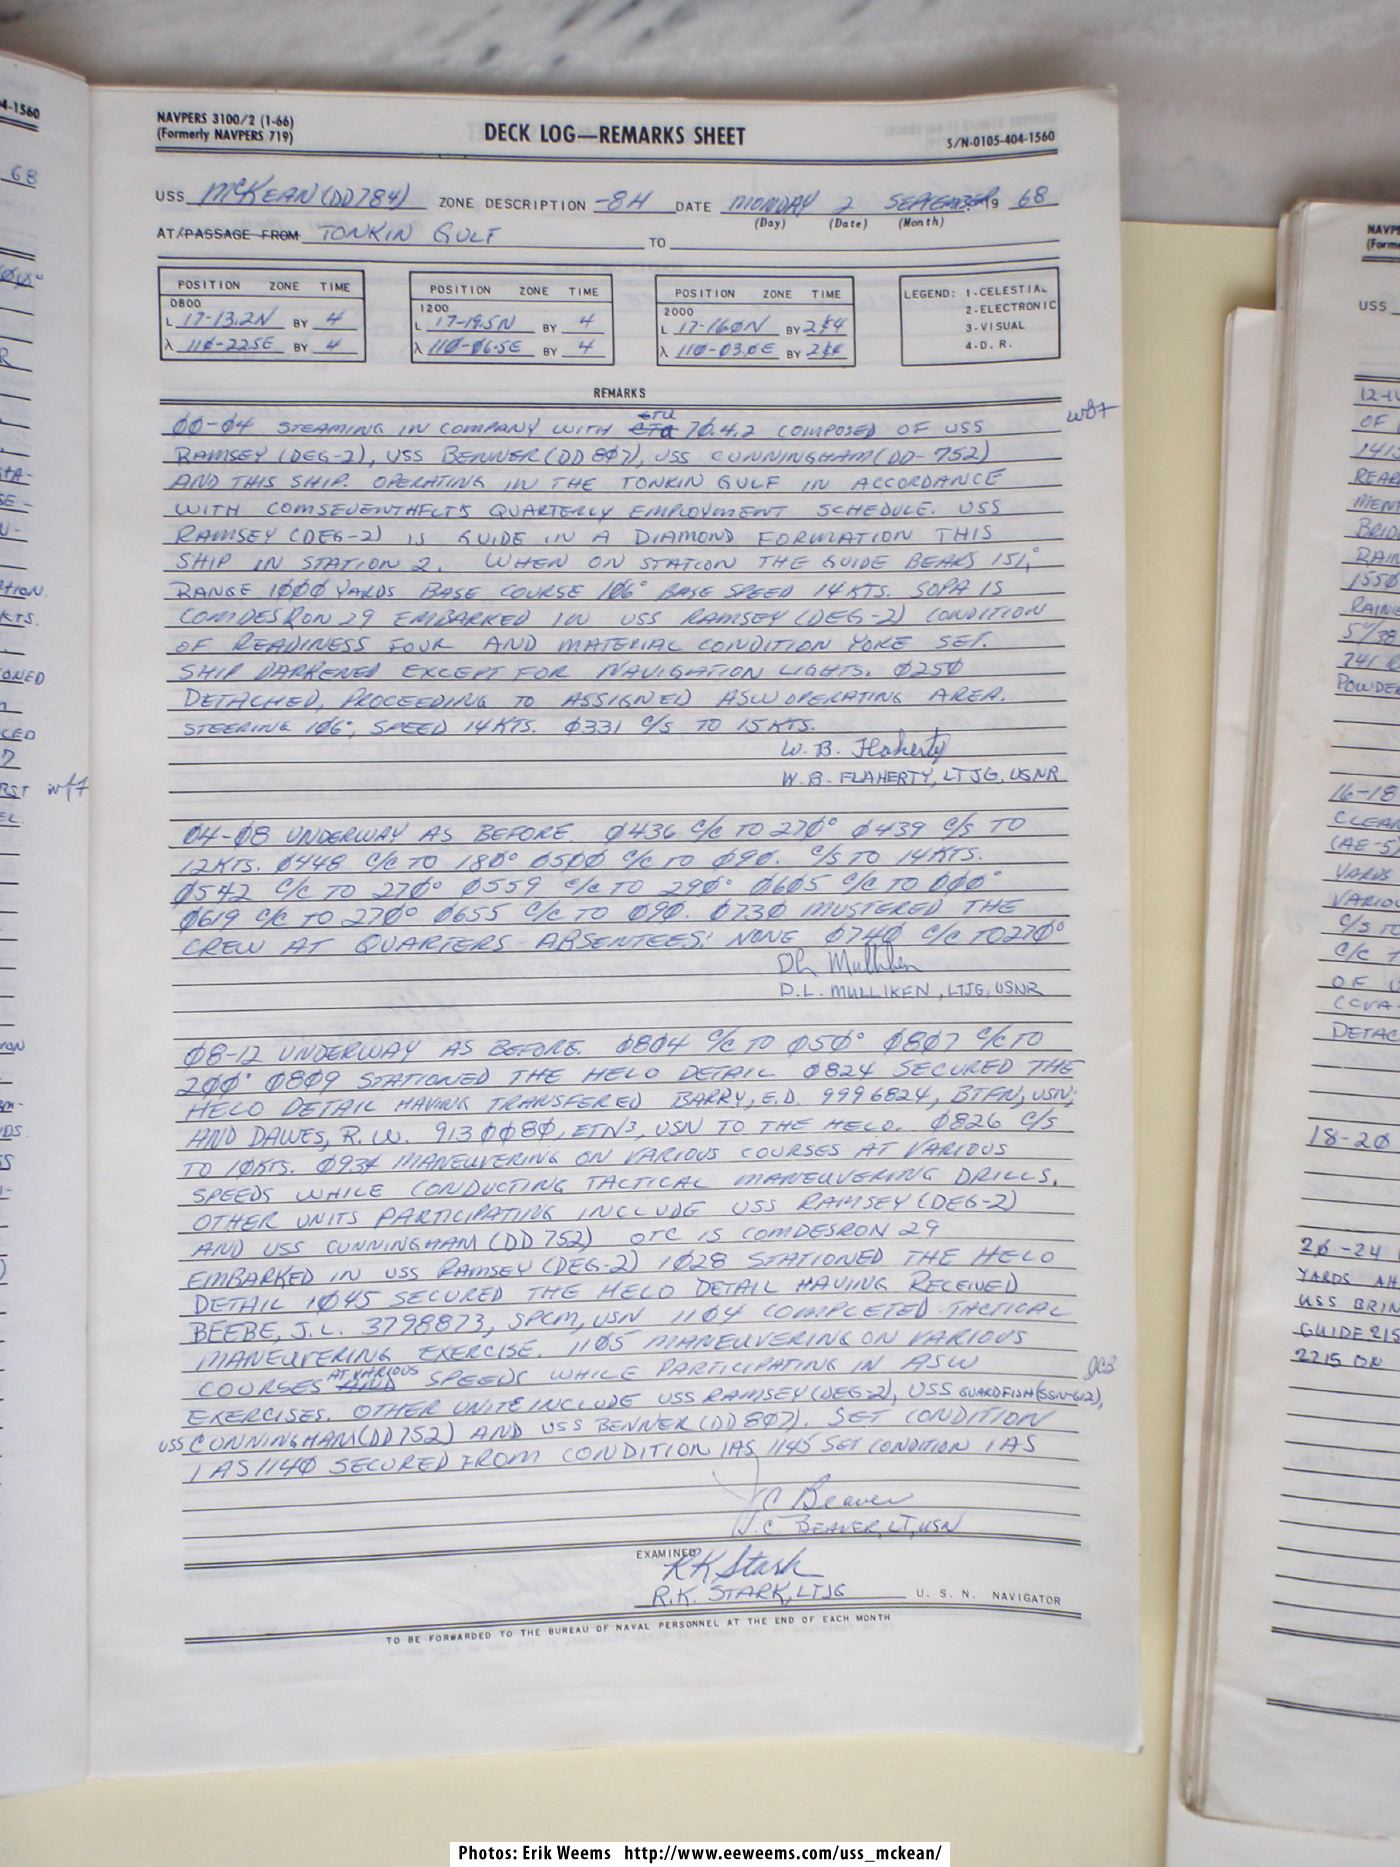 4-1560
68
NAVPERS 3100/2 (1-66)
(Formerly NAVPERS 719)
DECK LOG—REMARKS SHEET
S/N-0105-404-1560
USS McKEAN (DD784) ZONE DESCRIPTION -8H DATE MONDAY 2 SEPTEMBER 19 68
(Day) (Date) (Month)
AT/PASSAGE FROM TONKIN GULF TO
POSITION ZONE TIME
0800
L 17-13.2N BY 4
λ 110-22.5E BY 4
POSITION ZONE TIME
1200
L 17-19.5N BY 4
λ 110-06.5E BY 4
POSITION ZONE TIME
2000
L 17-16.0N BY 2&4
λ 110-03.0E BY 2&4
LEGEND: 1-CELESTIAL
2-ELECTRONIC
3-VISUAL
4-D. R.
REMARKS
00-04 STEAMING IN COMPANY WITH CTU 70.4.2 COMPOSED OF USS
RAMSEY (DEG-2), USS BENNER (DD 807), USS CUNNINGHAM (DD-752)
AND THIS SHIP. OPERATING IN THE TONKIN GULF IN ACCORDANCE
WITH COMSEVENTHFLTS QUARTERLY EMPLOYMENT SCHEDULE. USS
RAMSEY (DEG-2) IS GUIDE IN A DIAMOND FORMATION THIS
SHIP IN STATION 2. WHEN ON STATION THE GUIDE BEARS 151°,
RANGE 1000 YARDS BASE COURSE 106° BASE SPEED 14KTS. SOPA IS
COMDESRON 29 EMBARKED IN USS RAMSEY (DEG-2) CONDITION
OF READINESS FOUR AND MATERIAL CONDITION YOKE SET.
SHIP DARKENED EXCEPT FOR NAVIGATION LIGHTS. 0250
DETACHED, PROCEEDING TO ASSIGNED ASW OPERATING AREA.
STEERING 106°, SPEED 14KTS. 0331 C/S TO 15KTS.
W. B. Flaherty
W. B. FLAHERTY, LTJG, USNR
04-08 UNDERWAY AS BEFORE. 0436 C/C TO 270° 0439 C/S TO
12KTS. 0448 C/C TO 180° 0500 C/C TO 090. C/S TO 14KTS.
0542 C/C TO 270° 0559 C/C TO 290° 0605 C/C TO 000°
0619 C/C TO 270° 0655 C/C TO 090. 0730 MUSTERED THE
CREW AT QUARTERS - ABSENTEES: NONE 0740 C/C TO 270°
DL Mulliken
D.L. MULLIKEN, LTJG, USNR
08-12 UNDERWAY AS BEFORE. 0804 C/C TO 050° 0807 C/C TO
200° 0809 STATIONED THE HELO DETAIL 0824 SECURED THE
HELO DETAIL HAVING TRANSFERED BARRY, E.D. 9996824, BTFN, USN;
AND DAWES, R.W. 9130080, ETN3, USN TO THE HELO. 0826 C/S
TO 10KTS. 0934 MANEUVERING ON VARIOUS COURSES AT VARIOUS
SPEEDS WHILE CONDUCTING TACTICAL MANEUVERING DRILLS.
OTHER UNITS PARTICIPATING INCLUDE USS RAMSEY (DEG-2)
AND USS CUNNINGHAM (DD 752) OTC IS COMDESRON 29
EMBARKED IN USS RAMSEY (DEG-2) 1028 STATIONED THE HELO
DETAIL 1045 SECURED THE HELO DETAIL HAVING RECEIVED
BEEBE, J.L. 3798873, SPCM, USN 1104 COMPLETED TACTICAL
MANEUVERING EXERCISE. 1105 MANEUVERING ON VARIOUS
COURSES AT VARIOUS SPEEDS WHILE PARTICIPATING IN ASW
EXERCISES. OTHER UNITS INCLUDE USS RAMSEY (DEG-2), USS GUARDFISH (SSN-612),
USS CUNNINGHAM (DD 752) AND USS BENNER (DD 807). SET CONDITION
1 AS 1140 SECURED FROM CONDITION 1AS 1145 SET CONDITION 1AS
J C Beaver
J. C. BEAVER, LT, USN
EXAMINED
RK Stark
R.K. STARK, LTJG U. S. N. NAVIGATOR
TO BE FORWARDED TO THE BUREAU OF NAVAL PERSONNEL AT THE END OF EACH MONTH
NAVPE
(Forme
USS
18-20
20-24
YARDS AH
USS BRIN
GUIDE 215
2215 ON
Photos: Erik Weems http://www.eeweems.com/uss_mckean/